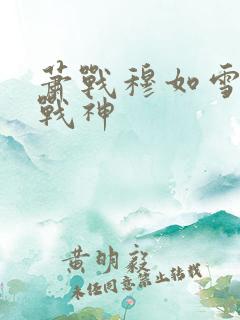 萧戰穆如雪
戰神
黄明毅
未经同意禁止转载